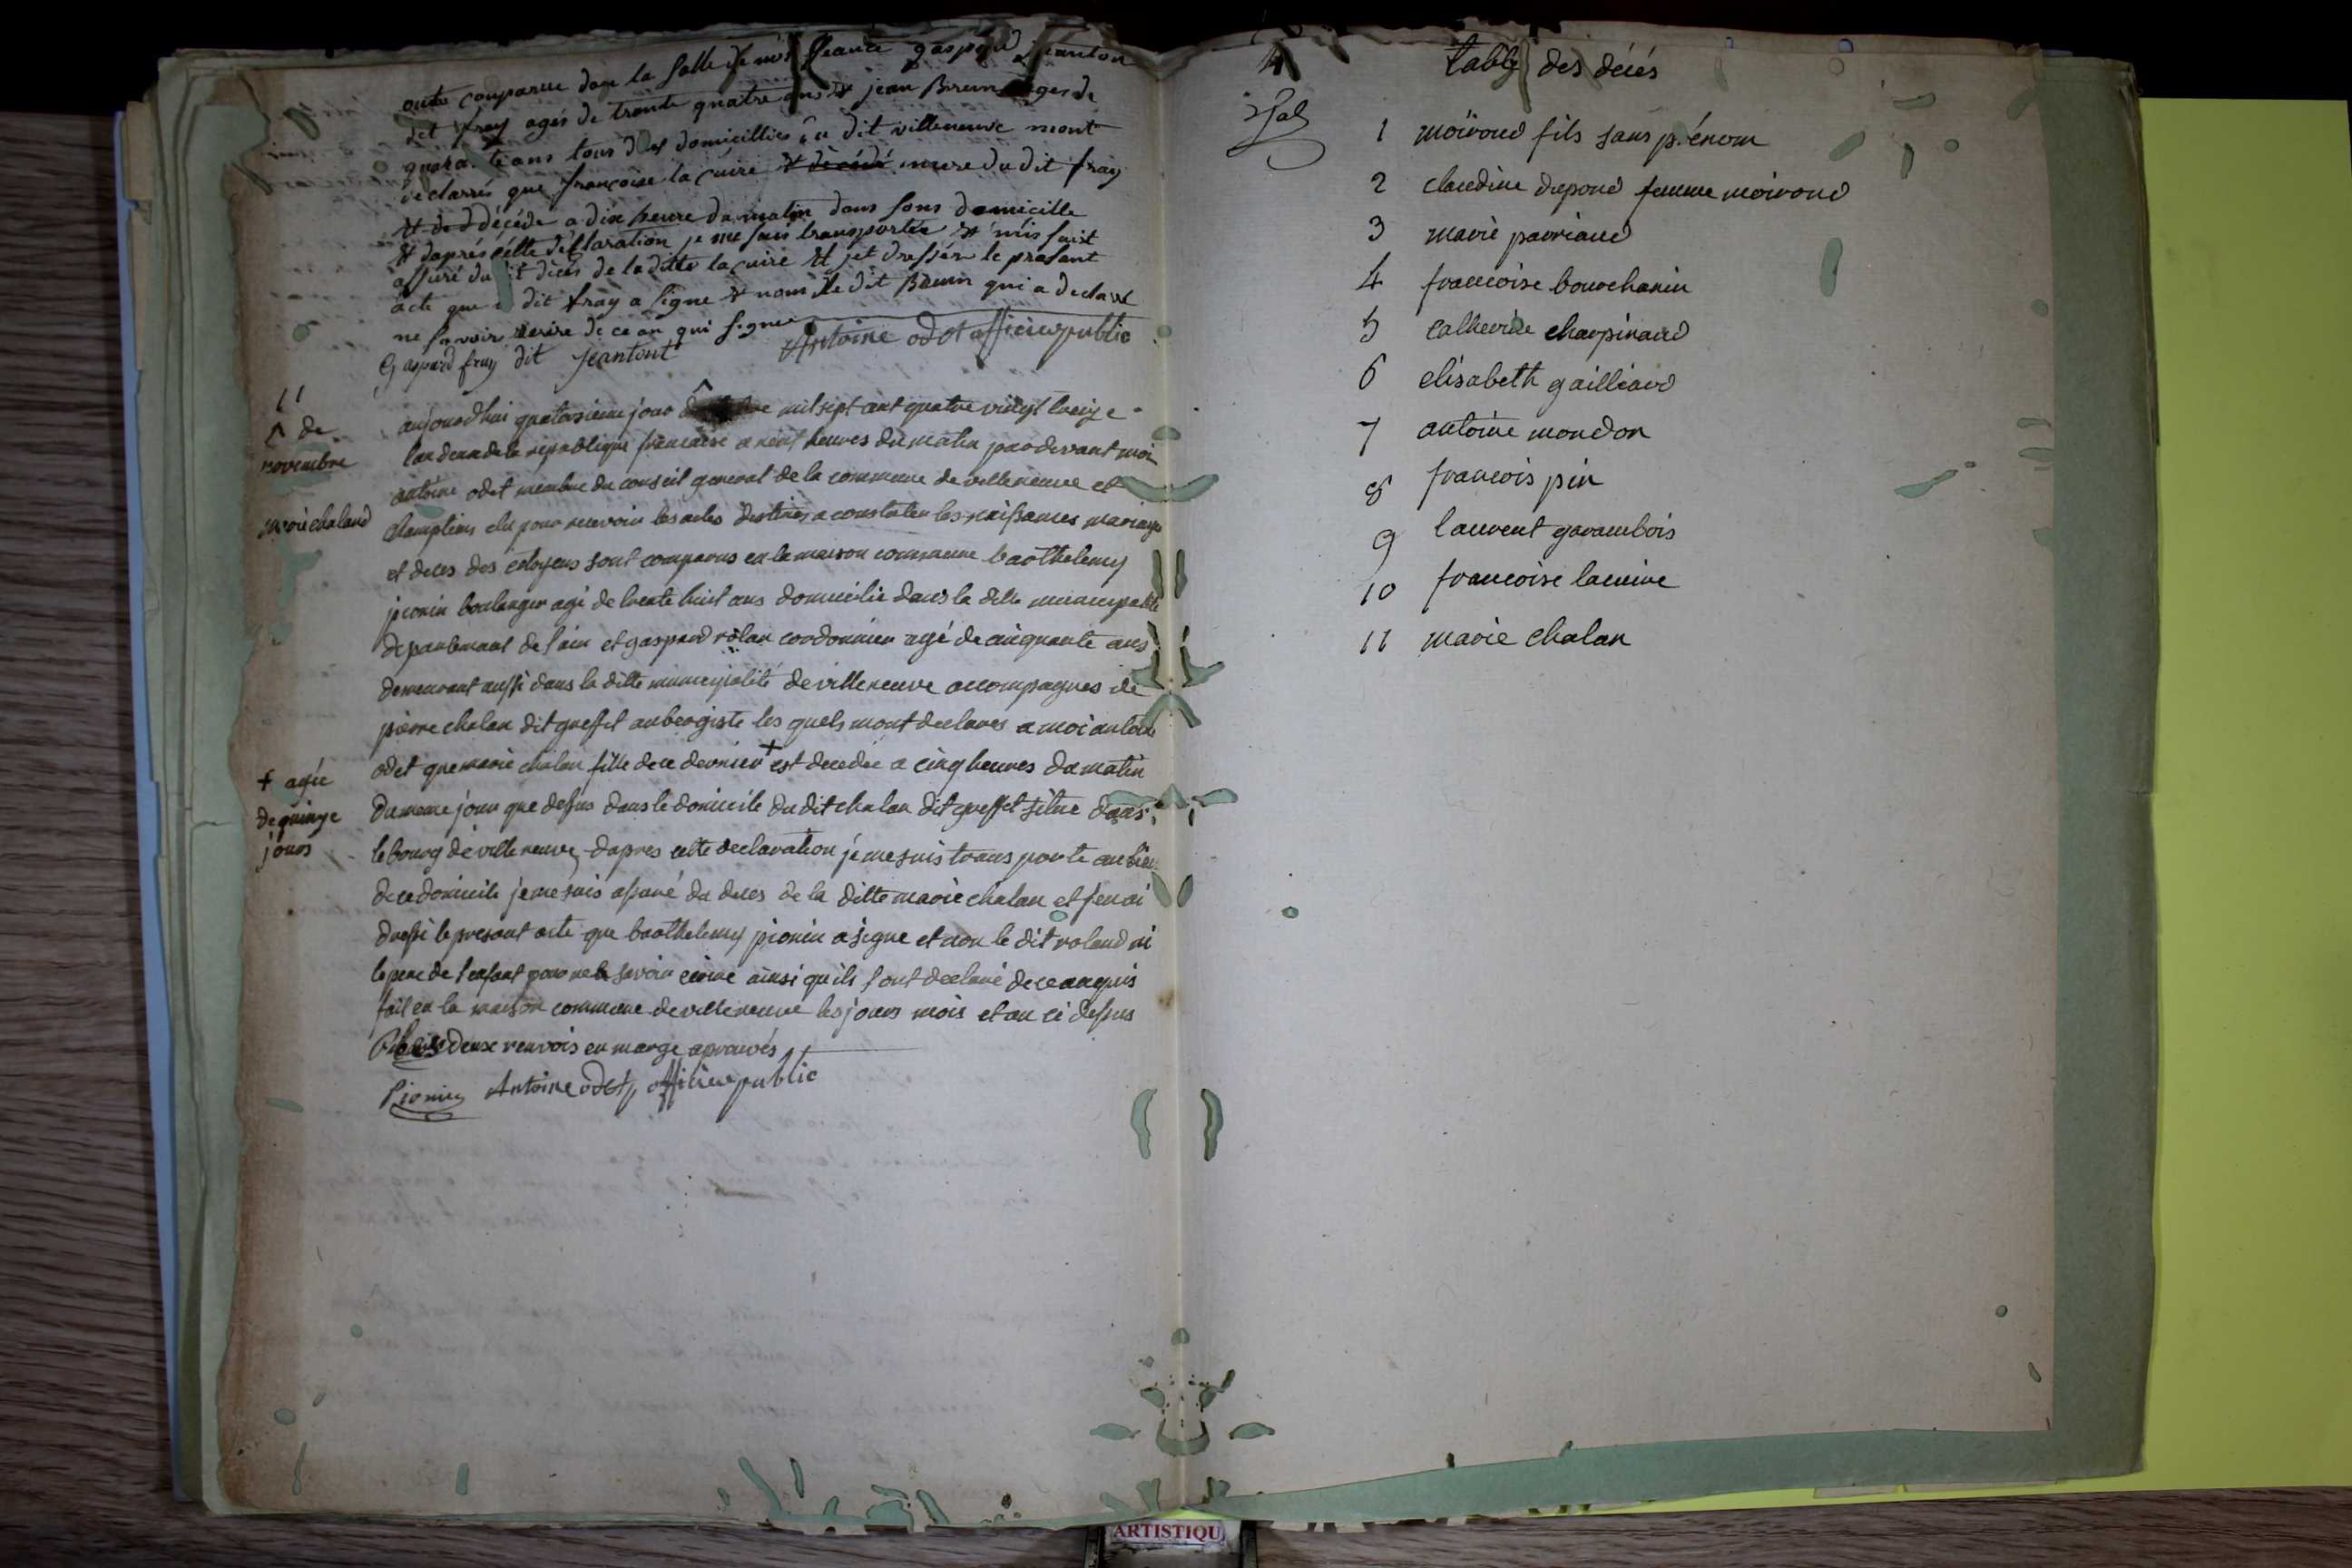 onts comparue dans la salle de nos séance gaspard jeanton
dit fray agés de trante quatre ans & jean Brun ages de
quarante ans tous deux domicilliés au dit villeneuve mont
declarrés que francoise la cuire & décédé mere du dit fray
& ded décéde a dix heure du matin dans sons domicille
& daprés cette déclaration je me suis transportée & mis suist
assuré du dit décés de la ditte la cuire & jet dressér le prasant
acte que le dit fray a signe & nom le dit Brun qui a declare
ne savoir écrire de ce an qui signer
Gaspard fray dit Jeantont Antoine odet officier public
11
^ de
novembre
marie chaland
aujourdhui quatorsieme jour ^ mil sept cent quatre vingt treize
lan deux de la republique francaise a neuf heures du matin par devant moi
antoine odet membre du conseil general de la commune de villeneuve et
champtein elu pour recevoir les actes destinés a constater les naissances mariages
et deces des citoyens sont comparus en la maison commune barthelemy
pionin boulanger agé de trente huit ans domicilié dans la ditte municipalité
departement de l'ain et gaspard rolan cordonnier agé de cinquante ans
demeurant aussi dans la ditte municipalité de villeneuve accompagnes de
pierre chalan dit gueffet aubergiste les quels mont declares a moi antoine
odet que marie chalan fille de ce dernier + est decedée a cinq heures du matin
+ agée
de quinze
jours
du meme jour que dessus dans le domicile du dit chalan dit gueffet situe dans
le bourg de villeneuve, dapres cette declaration je me suis trans porte au lieu
de ce domicile je me suis assuré du deces de la ditte marie chalan et j'en ai
dressé le presant acte que barthelemy pionin a signe et non le dit roland ni
le pere de l'enfant pour ne le savoir ecrire ainsi qu'ils l'ont declaré de ce anquis
fait en la maison commune de villeneuve les jours mois et an ci dessus
deux renvois en marge aprouvés
Pionin Antoine odet, officier public
table des décés
1 moiroud fils sans prénom
2 claudine dupond femme moiroud
3 marie pavriaud
4 francoise bourchanin
5 catherine charpinaud
6 elisabeth gailliard
7 antoine mondon
8 francois pin
9 laurent garambois
10 francoise lacuire
11 marie chalan
ARTISTIQU